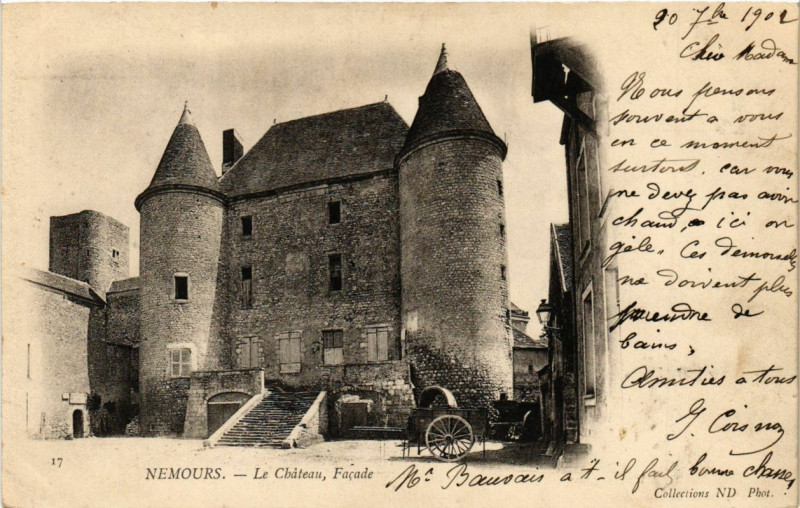 20 7bre 1902
Chère Madam
Nous pensons
souvent a vous
en ce moment
surtout. car vous
ne devez pas avoir
chaud, ici on
gèle. Ces demoiselles
ne doivent plus
prendre de
bains,
Amities a tous
G.
17
NEMOURS. — Le Château, Façade
Mr Bauvais a t-il fait bonne chasse,
Collections ND Phot.